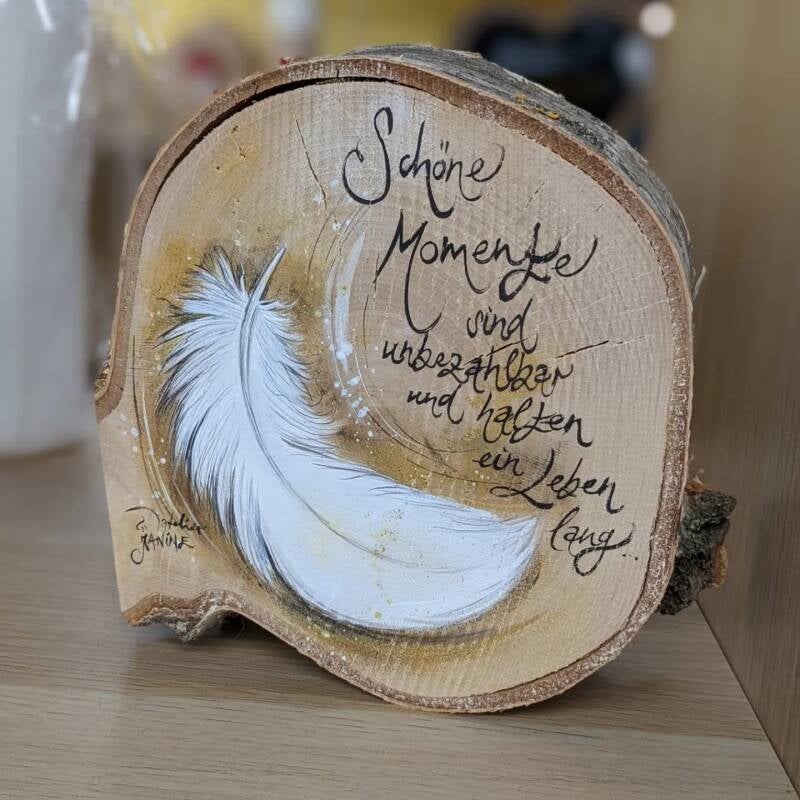 Schöne
Momente
sind
unbezahlbar
und halten
ein Leben
lang...
Atelier
JEANINE